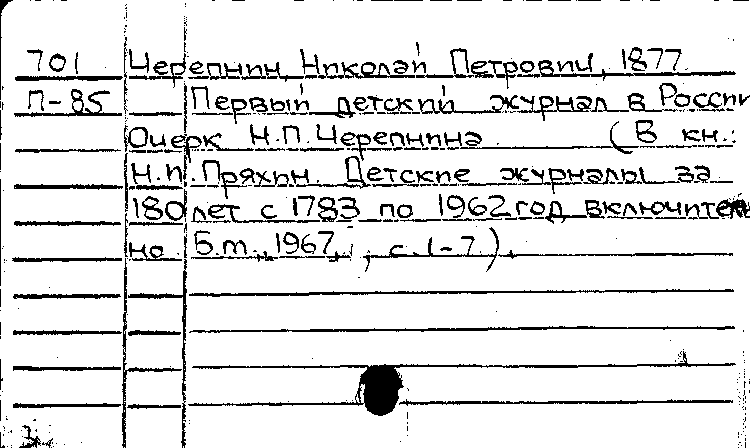 701 Черепнин, Николай Петрович, 1877
П-85 Первый детский журнал в России
Очерк Н.П.Черепнина (В кн.:
Н.П.Пряхин. Детские журналы за
180 лет с 1783 по 1962 год включитель
но Б.м., 1967, с.1-7).